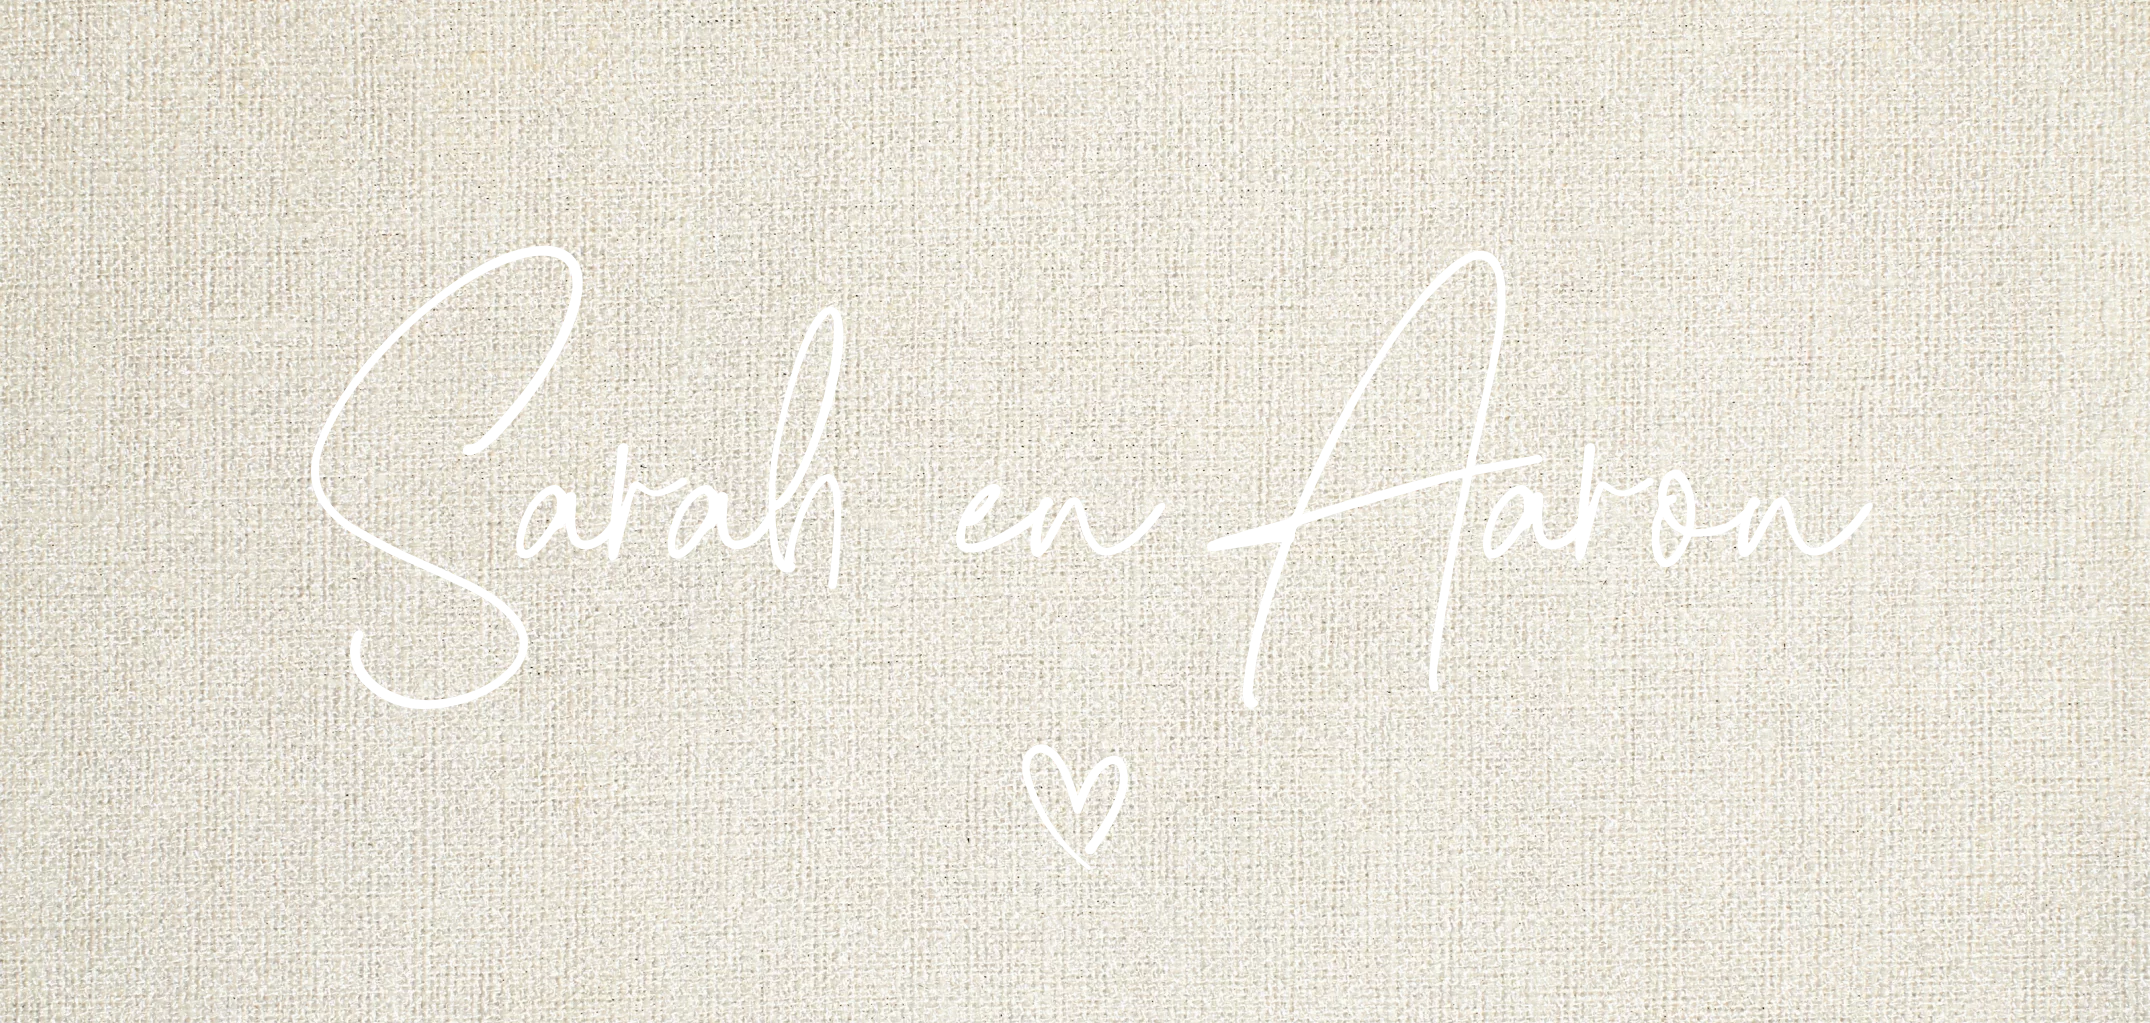 Sarah en Aaron